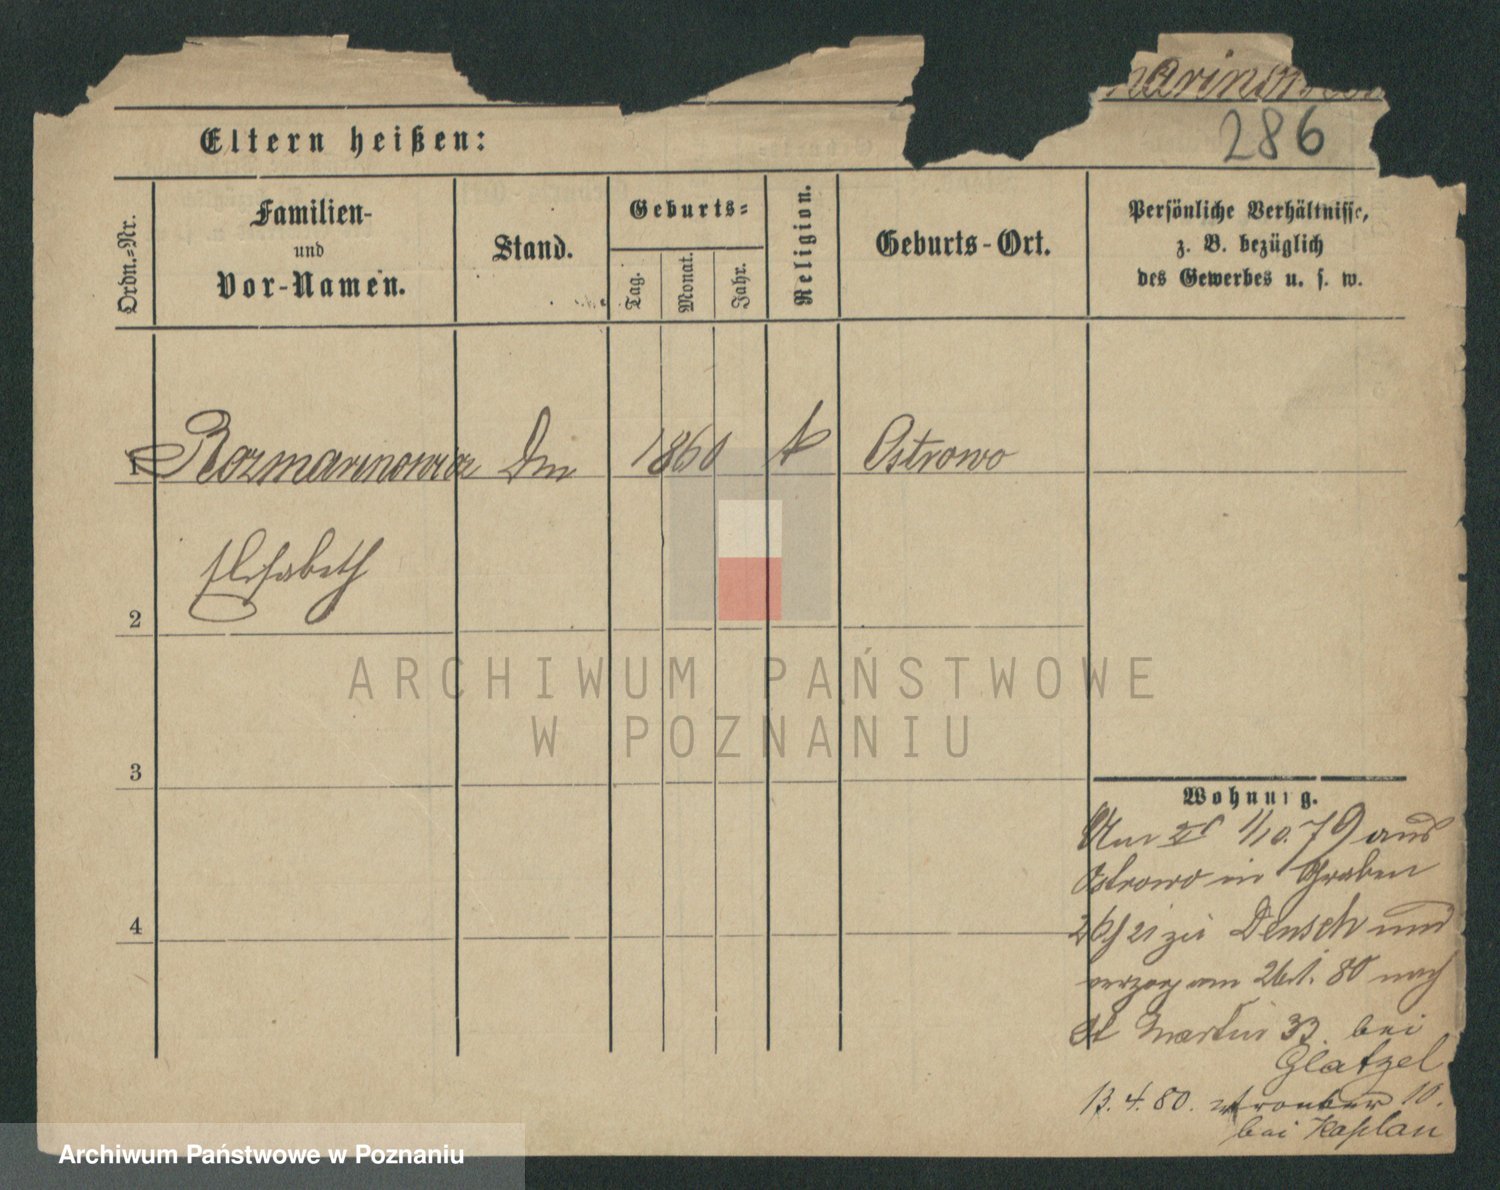 286
Eltern heißen:
Ordn.-Nr.
Familien-
und
Vor-Namen.
Stand.
Geburts-
Tag.
Monat.
Jahr.
Religion.
Geburts-Ort.
Persönliche Verhältnisse,
z. B. bezüglich
des Gewerbes u. s. w.
1 Rozmarinowicz 1860 K Ostrowo
Elisabeth
2
3
4
Wohnung.
1/10. 79 aus
Ostrowo in Graben
zu Densch und
verzog am 26.1. 80 nach
St Martin 33. bei
Glatzel
13. 4. 80. 10.
bei Kaplan
ARCHIWUM PAŃSTWOWE
W POZNANIU
Archiwum Państwowe w Poznaniu